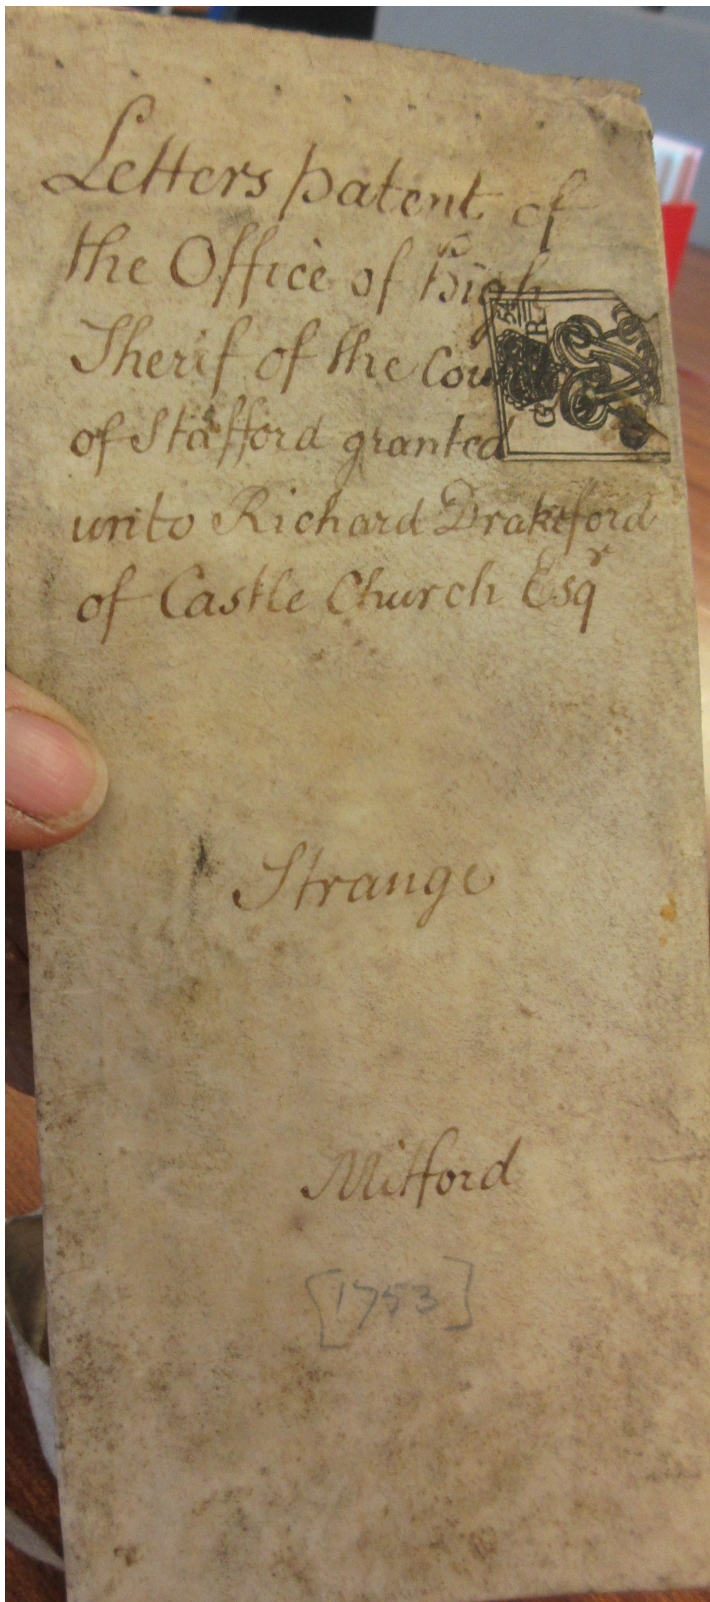 Letters patent of
the Office of High
Sherif of the Cou
of Stafford granted
unto Richard Drakeford
of Castle Church Esqr
Strange
Mitford
[1753]